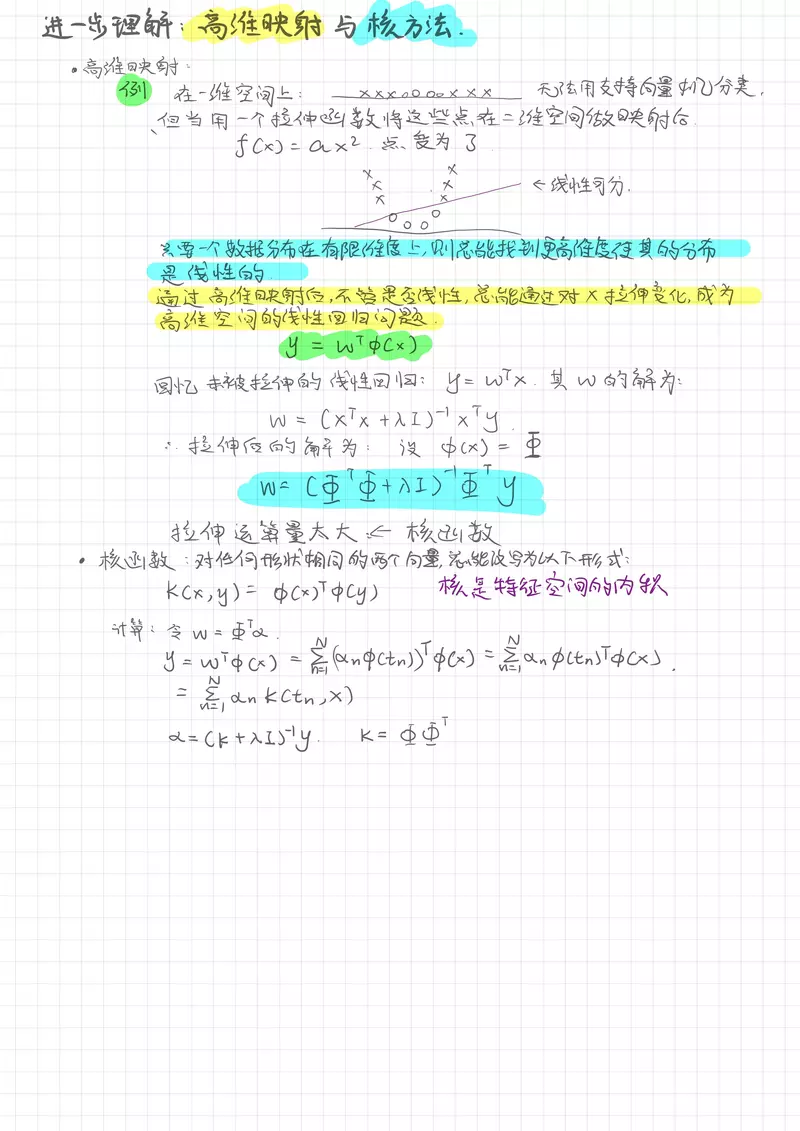 进一步理解：高维映射与核方法.
• 高维映射：
例 在一维空间上： xxxooooxxx 无法用支持向量机分类,
但当用一个拉伸函数将这些点在二维空间做映射后
f(x) = ax². 点变为了
← 线性可分.
只要一个数据分布在有限维度上,则总能找到更高维度使其的分布
是线性的.
通过高维映射后,不管是否线性,总能通过对x拉伸变化,成为
高维空间的线性回归问题.
y = wᵀφ(x)
回忆未被拉伸的线性回归： y = wᵀx. 其w的解为：
w = (xᵀx + λI)⁻¹xᵀy.
∴ 拉伸后的解为： 设 φ(x) = Φ
w = (ΦᵀΦ + λI)⁻¹Φᵀy
拉伸运算量太大 ← 核函数
• 核函数：对任何形状相同的两个向量,总能改写为以下形式：
k(x, y) = φ(x)ᵀφ(y) 核是特征空间的内积
计算：令 w = Φᵀα.
y = wᵀφ(x) = Σₙ₌₁ᴺ(αₙφ(tₙ))ᵀφ(x) = Σₙ₌₁ᴺαₙφ(tₙ)ᵀφ(x).
= Σₙ₌₁ᴺ αₙk(tₙ, x)
α = (k + λI)⁻¹y. k = ΦΦᵀ